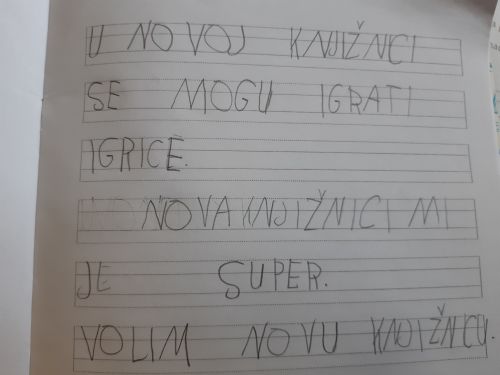 U NOVOJ KNJIŽNICI
SE MOGU IGRATI
IGRICE.
NOVA KNJIŽNICI MI
JE SUPER.
VOLIM NOVU KNJIŽNICU.